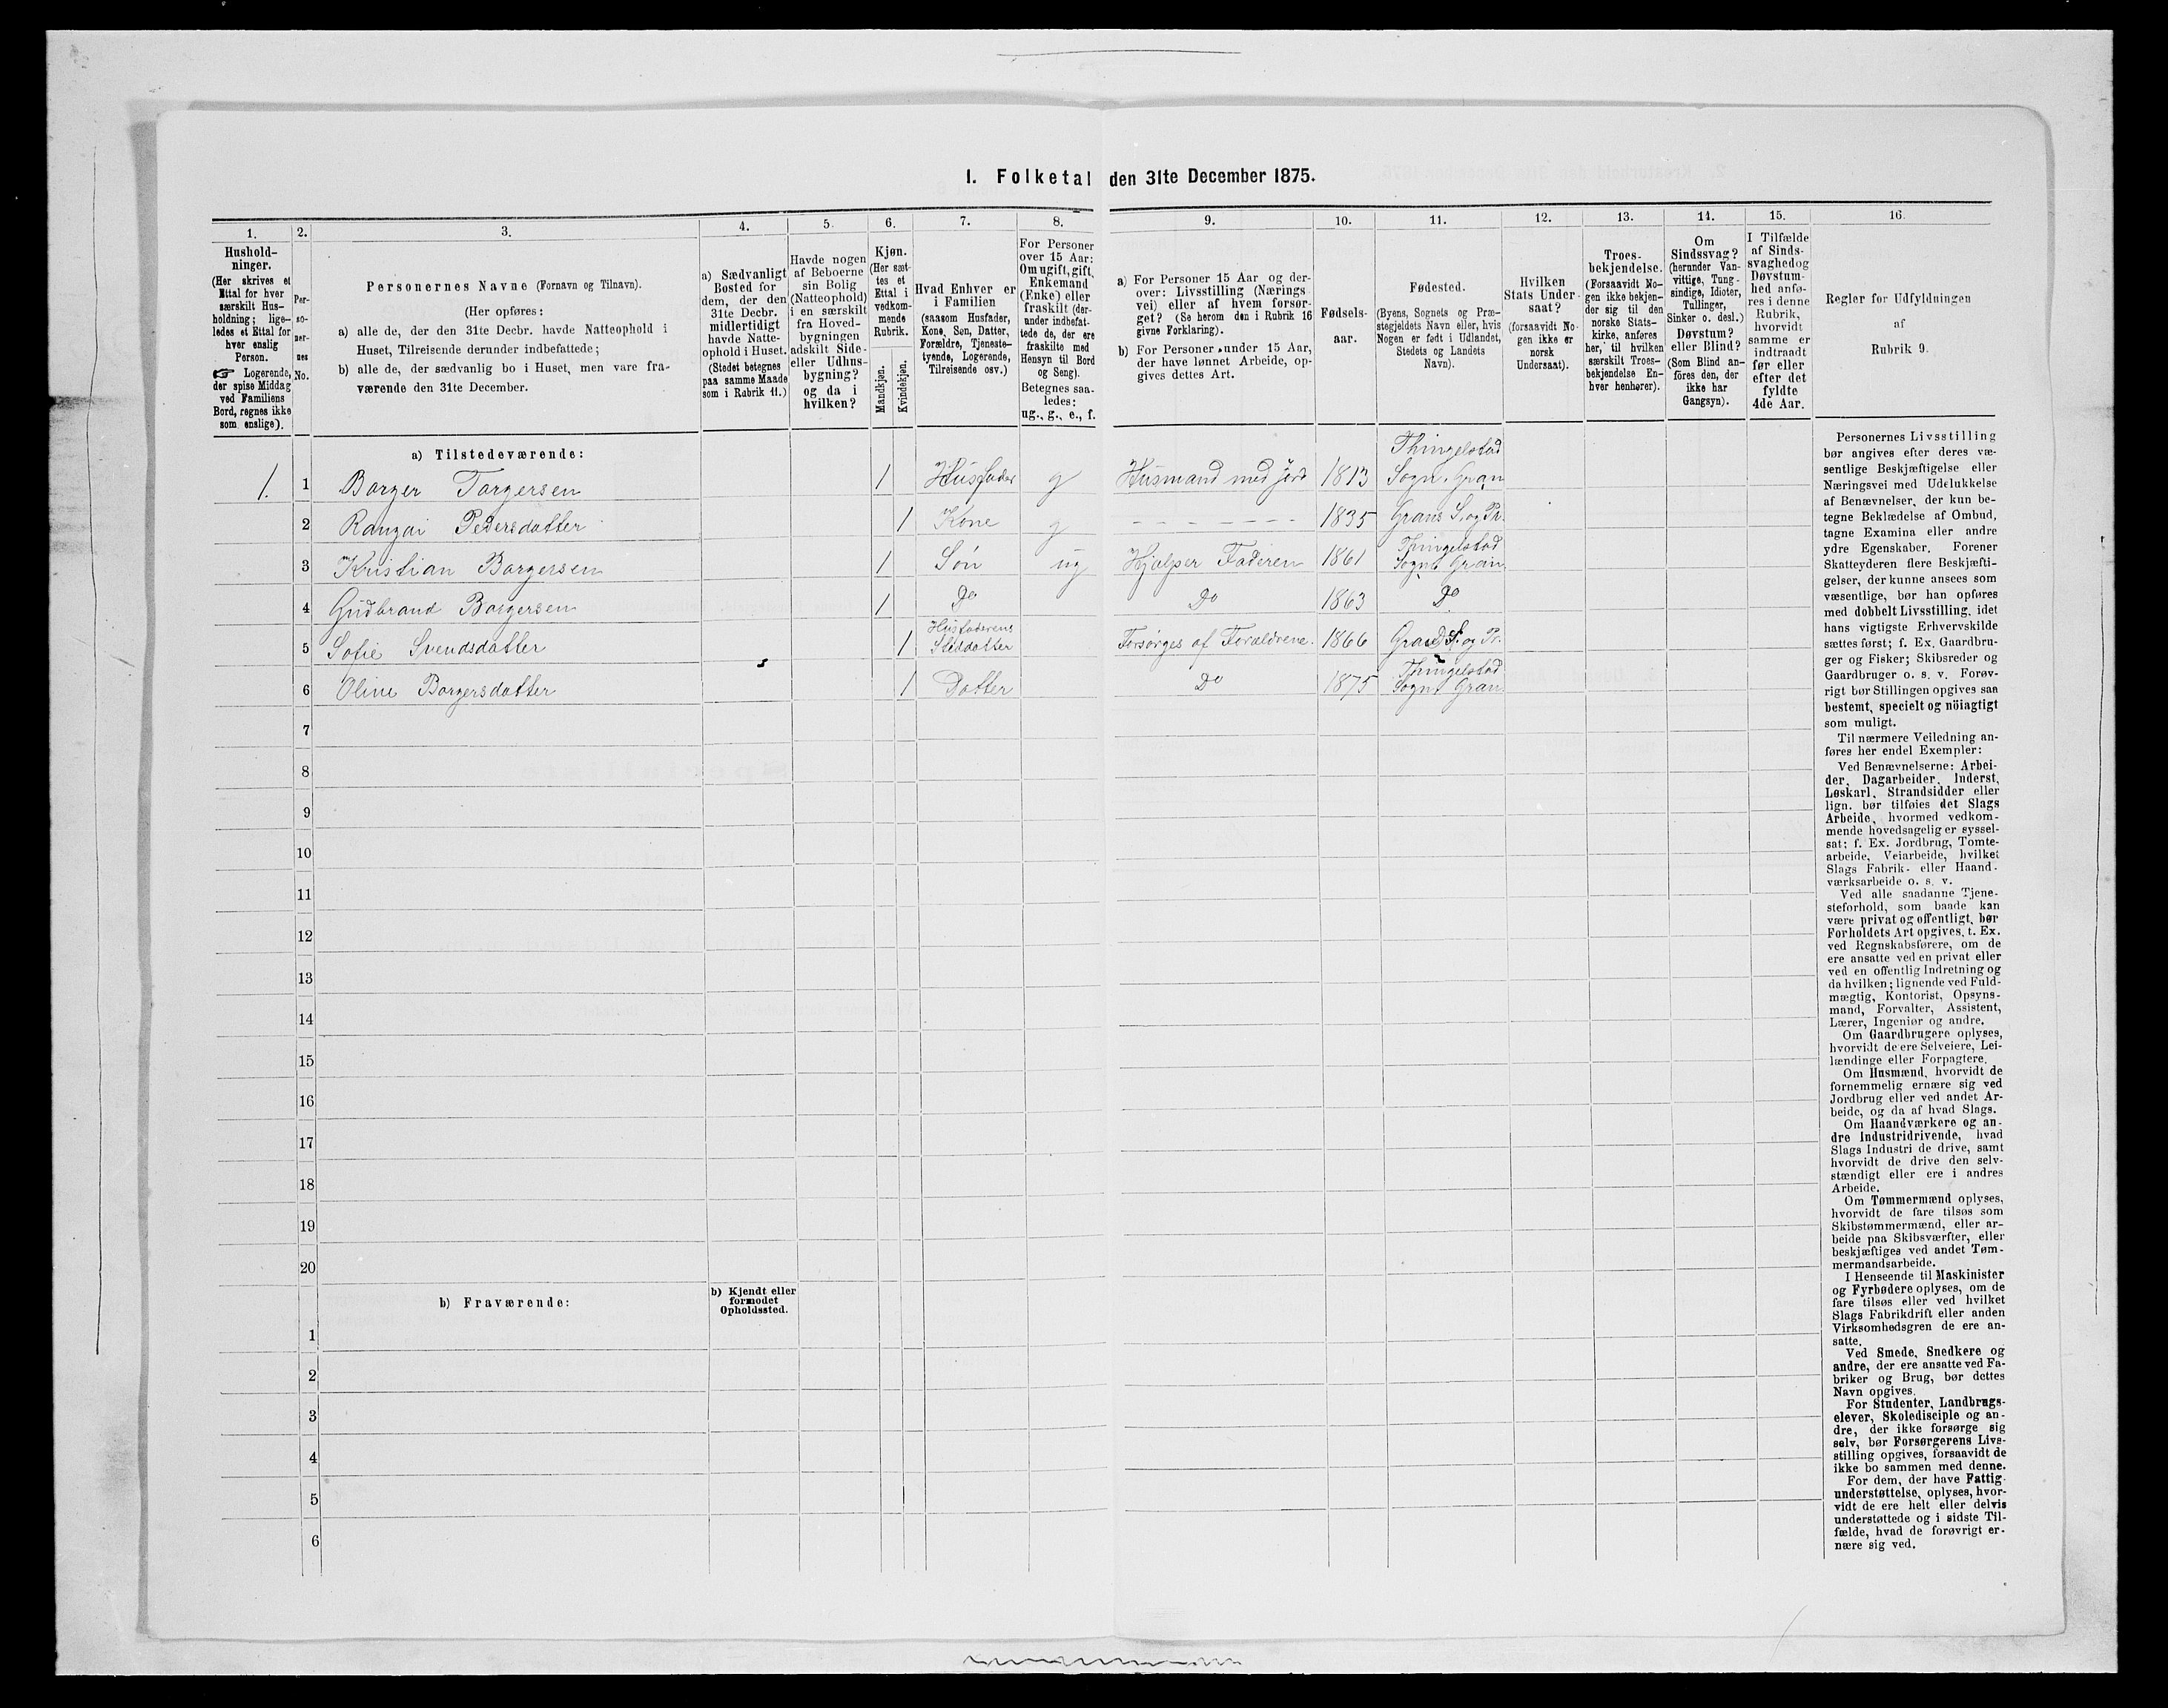 I. Folketal den 31te December 1875.
1.
2.
3.
4.
5.
6.
7.
8.
9.
10.
11.
12.
13.
14.
15.
16.
Hushold-
ninger.
(Her skrives et
Ettal for hver
særskilt Hus-
holdning; lige-
ledes et Ettal for
hver enslig
Person.
☞ Logerende,
der spise Middag
ved Familiens
Bord, regnes ikke
som enslige).
Per-
so-
ner-
nes
No.
Personernes Navne (Fornavn og Tilnavn).
(Her opføres:
a) alle de, der den 31te Decbr. havde Natteophold i
Huset, Tilreisende derunder indbefattede;
b) alle de, der sædvanlig bo i Huset, men vare fra-
værende den 31te December.
a) Sædvanligt
Bosted for
dem, der den
31te Decbr.
midlertidigt
havde Natte-
ophold i Huset.
(Stedet betegnes
paa samme Maade
som i Rubrik 11.)
Havde nogen
af Beboerne
sin Bolig
(Natteophold)
i en særskilt
fra Hoved-
bygningen
adskilt Side-
eller Udhus-
bygning?
og da i
hvilken?
Kjøn.
(Her sæt-
tes et
Ettal i
vedkom-
mende
Rubrik.
Mandkjøn.
Kvindekjøn.
Hvad Enhver er
i Familien
(saasom Husfader,
Kone, Søn, Datter,
Forældre, Tjeneste-
tyende, Logerende,
Tilreisende osv.)
For Personer
over 15 Aar:
Om ugift, gift,
Enkemand
(Enke) eller
fraskilt (der-
under indbefat-
tede de, der ere
fraskilte med
Hensyn til Bord
og Seng).
Betegnes saa-
ledes:
ug., g., e., f.
a) For Personer 15 Aar og der-
over: Livsstilling (Nærings
vei) eller af hvem forsør-
get? (Se herom den i Rubrik 16
givne Forklaring).
b) For Personer under 15 Aar,
der have lønnet Arbeide, op-
gives dettes Art.
Fødsels-
aar.
Fødested.
(Byens, Sognets og Præ-
stegjeldets Navn eller, hvis
Nogen er født i Udlandet,
Stedets og Landets
Navn).
Hvilken
Stats Under-
saat?
(forsaavidt No-
gen ikke er
norsk
Undersaat).
Troes-
bekjendelse.
(Forsaavidt No-
gen ikke bekjen-
der sig til den
norske Stats-
kirke, anføres
her, til hvilken
særskilt Troes-
bekjendelse En-
hver henhører).
Om
Sindssvag?
(herunder Van-
vittige, Tung-
sindige, Idioter,
Tullinger,
Sinker o. desl.)
Døvstum?
eller Blind?
(Som Blind an-
føres den, der
ikke har
Gangsyn).
I Tilfælde
af Sinds-
svaghed og
Døvstum-
hed anfø-
res i denne
Rubrik,
hvorvidt
samme er
indtraadt
før eller
efter det
fyldte
4de Aar.
Regler for Udfyldningen
af
Rubrik 9.
a) Tilstedeværende:
1. 1 Borger Torgersen 1 Husfader g Husmand med Jord 1813 Thingelstad
Sogn. Gran
2 Rangdi Pedersdatter 1 Kone g - - - - - - - 1835 Grans S. og Pr.
3 Kristian Borgersen 1 Søn ug Hjælper Faderen 1861 Thingelstad
Sogn Gran
4 Gudbrand Borgersen 1 Do Do 1863 Do
5 Sofie Svendsdatter 1 Husfaderens
Steddatter Forsørges af Forældrene. 1866 Grans S. og Pr.
6 Oline Borgersdatter 1 Datter Do 1875 Thingelstad
Sogn Gran
7
8
9
10
11
12
13
14
15
16
17
18
19
20
b) Fraværende:
b) Kjendt eller
formodet
Opholdssted.
1
2
3
4
5
6
Personernes Livsstilling
bør angives efter deres væ-
sentlige Beskjæftigelse eller
Næringsvei med Udelukkelse
af Benævnelser, der kun be-
tegne Beklædelse af Ombud,
tagne Examina eller andre
ydre Egenskaber. Forener
Skatteyderen flere Beskjæfti-
gelser, der kunne ansees som
væsentlige, bør han opføres
med dobbelt Livsstilling, idet
hans vigtigste Erhvervskilde
sættes først; f. Ex. Gaardbru-
ger og Fisker; Skibsreder og
Gaardbruger o. s. v. Forøv-
rigt bør Stillingen opgives saa
bestemt, specielt og nöiagtigt
som muligt.
Til nærmere Veiledning an-
føres her endel Exempler:
Ved Benævnelserne: Arbei-
der, Dagarbeider, Inderst,
Løskarl, Strandsidder eller
lign. bør tilføies det Slags
Arbeide, hvormed vedkom-
mende hovedsagelig er syssel-
sat; f. Ex. Jordbrug, Tomte-
arbeide, Veiarbeide, hvilket
Slags Fabrik- eller Haand-
værksarbeide o. s. v.
Ved alle saadanne Tjene-
steforhold, som baade kan
være privat og offentligt, bør
Forholdets Art opgives, t. Ex.
ved Regnskabsførere, om de
ere ansatte ved en privat eller
ved en offentlig Indretning og
da hvilken; lignende ved Fuld-
mægtig, Kontorist, Opsyns-
mand, Forvalter, Assistent,
Lærer, Ingeniør og andre.
Om Gaardbrugere oplyses,
hvorvidt de ere Selveiere, Lei-
lændinge eller Forpagtere.
Om Husmænd, hvorvidt de
fornemmelig ernære sig ved
Jordbrug eller ved andet Ar-
beide, og da af hvad Slags.
Om Haandværkere og an-
dre Industridrivende, hvad
Slags Industri de drive, samt
hvorvidt de drive den selv-
stændigt eller ere i andres
Arbeide.
Om Tømmermænd oplyses,
hvorvidt de fare tilsøs som
Skibstømmermænd, eller ar-
beide paa Skibsværfter, eller
beskjæftiges ved andet Tøm-
mermandsarbeide.
I Henseende til Maskinister
og Fyrbødere oplyses, om de
fare tilsøs eller ved hvilket
Slags Fabrikdrift eller anden
Virksomhedsgren de ere an-
satte.
Ved Smede, Snedkere og
andre, der ere ansatte ved Fa-
briker og Brug, bør dettes
Navn opgives.
For Studenter, Landbrugs-
elever, Skoledisciple og an-
dre, der ikke forsørge sig
selv, bør Forsørgerens Livs-
stilling opgives, forsaavidt de
ikke bo sammen med denne.
For dem, der have Fattig-
understøttelse, oplyses, hvor-
vidt de ere helt eller delvis
understøttede og i sidste Til-
fælde, hvad de forøvrigt er-
nære sig ved.